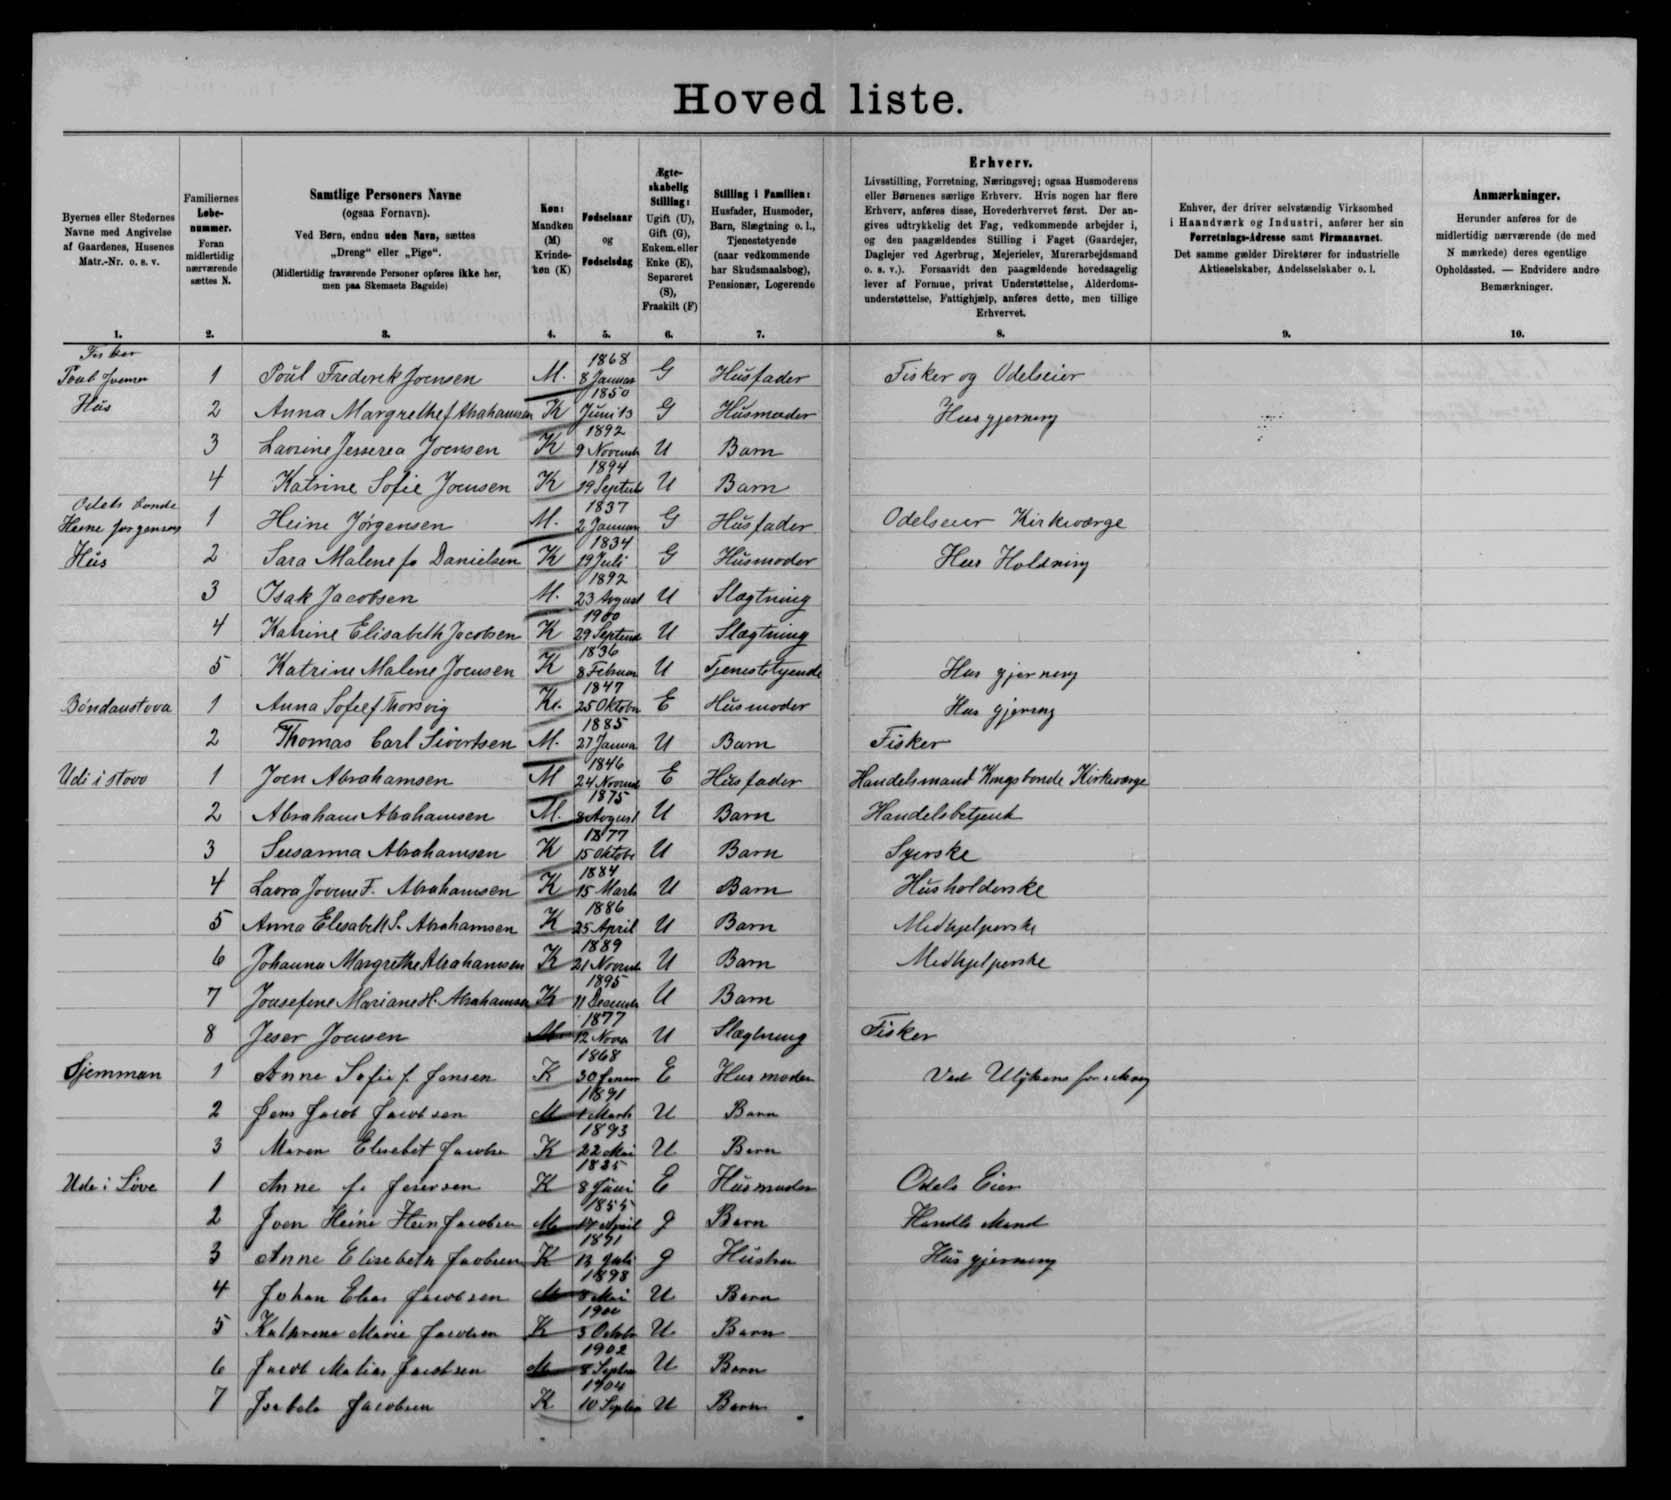 Hoved liste.
Byernes eller Stedernes Navne med Angivelse af Gaardenes, Husenes Matr.-Nr. o. s. v.
Familiernes Løbe-nummer. Foran midlertidig nærværende sættes N.
Samtlige Personers Navne (ogsaa Fornavn).
Ved Børn, endnu uden Navn, sættes „Dreng“ eller „Pige“.
(Midlertidig fraværende Personer opføres ikke her, men paa Skemaets Bagside)
Køn: Mandkøn (M) Kvinde-køn (K)
Fødselsaar og Fødselsdag
Ægte-skabelig Stilling: Ugift (U), Gift (G), Enkem. eller Enke (E), Separeret (S), Fraskilt (F)
Stilling i Familien: Husfader, Husmoder, Barn, Slægtning o. l., Tjenestetyende (naar vedkommende har Skudsmaalsbog), Pensionær, Logerende
Erhverv.
Livsstilling, Forretning, Næringsvej; ogsaa Husmoderens eller Børnenes særlige Erhverv. Hvis nogen har flere Erhverv, anføres disse, Hovederhvervet først. Der an-gives udtrykkelig det Fag, vedkommende arbejder i, og den paagældendes Stilling i Faget (Gaardejer, Daglejer ved Agerbrug, Mejerielev, Murerarbejdsmand o. s. v.). Forsaavidt den paagældende hovedsagelig lever af Formue, privat Understøttelse, Alderdoms-understøttelse, Fattighjælp, anføres dette, men tillige Erhvervet.
Enhver, der driver selvstændig Virksomhed i Haandværk og Industri, anfører her sin Forretnings-Adresse samt Firmanavnet. Det samme gælder Direktører for industrielle Aktieselskaber, Andelsselskaber o. l.
Anmærkninger.
Herunder anføres for de midlertidig nærværende (de med N mærkede) deres egentlige Opholdssted. — Endvidere andre Bemærkninger.
1. 2. 3. 4. 5. 6. 7. 8. 9. 10.
Fisker
Poul Joensen 1 Poul Frederik Joensen M. 1868 8 Januar G Husfader Fisker og Odelseier
Hus 2 Anna Margrethe f Abrahamsen K 1850 Juni 13 G Husmoder Husgjerning
3 Joensen K 1892 9 Novemb U Barn
4 Katrine Sofie Joensen K 1894 19 Septemb U Barn
Odels bonde
Heine Jørgensens 1 Heine Jørgensen M. 1837 2 Januar G Husfader Odelseier Kirkeværge
Hus 2 Sara Malene f. Danielsen K 1834 19 Juli G Husmoder Hus Holdning
3 Isak Jacobsen M. 1892 23 Avgust U Slægtning
4 Katrine Elisabeth Jacobsen K 1900 29 Septemb U Slægtning
5 Katrine Malene Joensen K 1836 8 Februar U Tjenestetyende Hus gjerning
Bóndanstova 1 Anna Sofie f Thorsvig K. 1847 25 Oktober E Husmoder Hus gjerning
2 Thomas Carl Sivertsen M. 1885 27 Januar U Barn Fisker
Udi i stovo 1 Joen Abrahamsen M 1846 24 Novemb E Husfader Handelsmand Kongsbonde Kirkeværge
2 Abraham Abrahamsen M. 1875 8 Avgust U Barn Handelsbetjent
3 Susanna Abrahamsen K 1877 15 Oktobe U Barn Syerske
4 Laura F. Abrahamsen K 1884 15 Marts U Barn Husholderske
5 Anna Elisabeth S. Abrahamsen K 1886 25 April U Barn Medhjelperske
6 Johanna Margrethe Abrahamsen K 1889 21 Novemb U Barn Medhjelperske
7 Josefine Mariane H. Abrahamsen K 1895 11 Decemb U Barn
8 Jeser Joensen M 1877 12 Novem U Slægtning Fisker
1 Anne Sofie f. Jensen K 1868 30 Januar E Husmoder Ved
2 Jens Jacob Jacobsen M 1891 1 Marts U Barn
3 Maren Elisebet Jacobsen K 1893 22 Mai U Barn
Ude i 1 Anne f. K 8 Juni E Husmoder Odels Eier
2 Joen Heine Jacobsen M 1855 17 April g Barn Handls Mand
3 Anne Elisebeth Jacobsen K 13 Juli g Hustru Husgjerning
4 Johan Elias Jacobsen M 1898 8 Mai U Barn
5 Kathrine Marie Jacobsen K 1900 5 Octob U Barn
6 Jacob Matias Jacobsen M 1902 8 Septem U Barn
7 Isabela Jacobsen K 1904 10 Septem U Barn